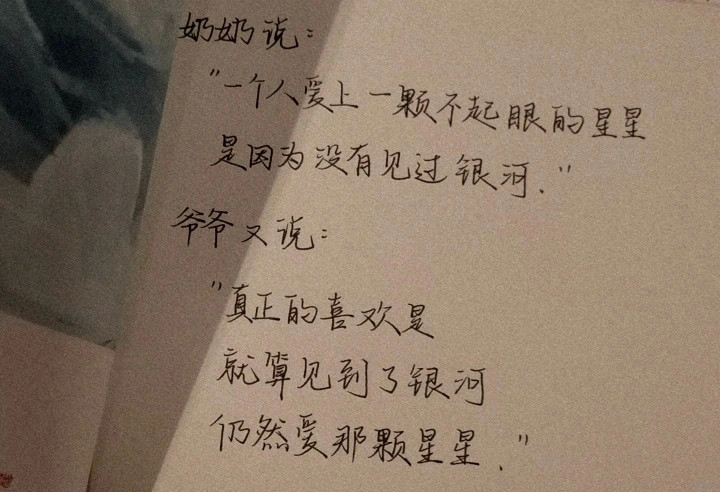 奶奶说：
"一个人爱上一颗不起眼的星星
是因为没有见过银河."
爷爷又说：
"真正的喜欢是
就算见到了银河
仍然爱那颗星星."